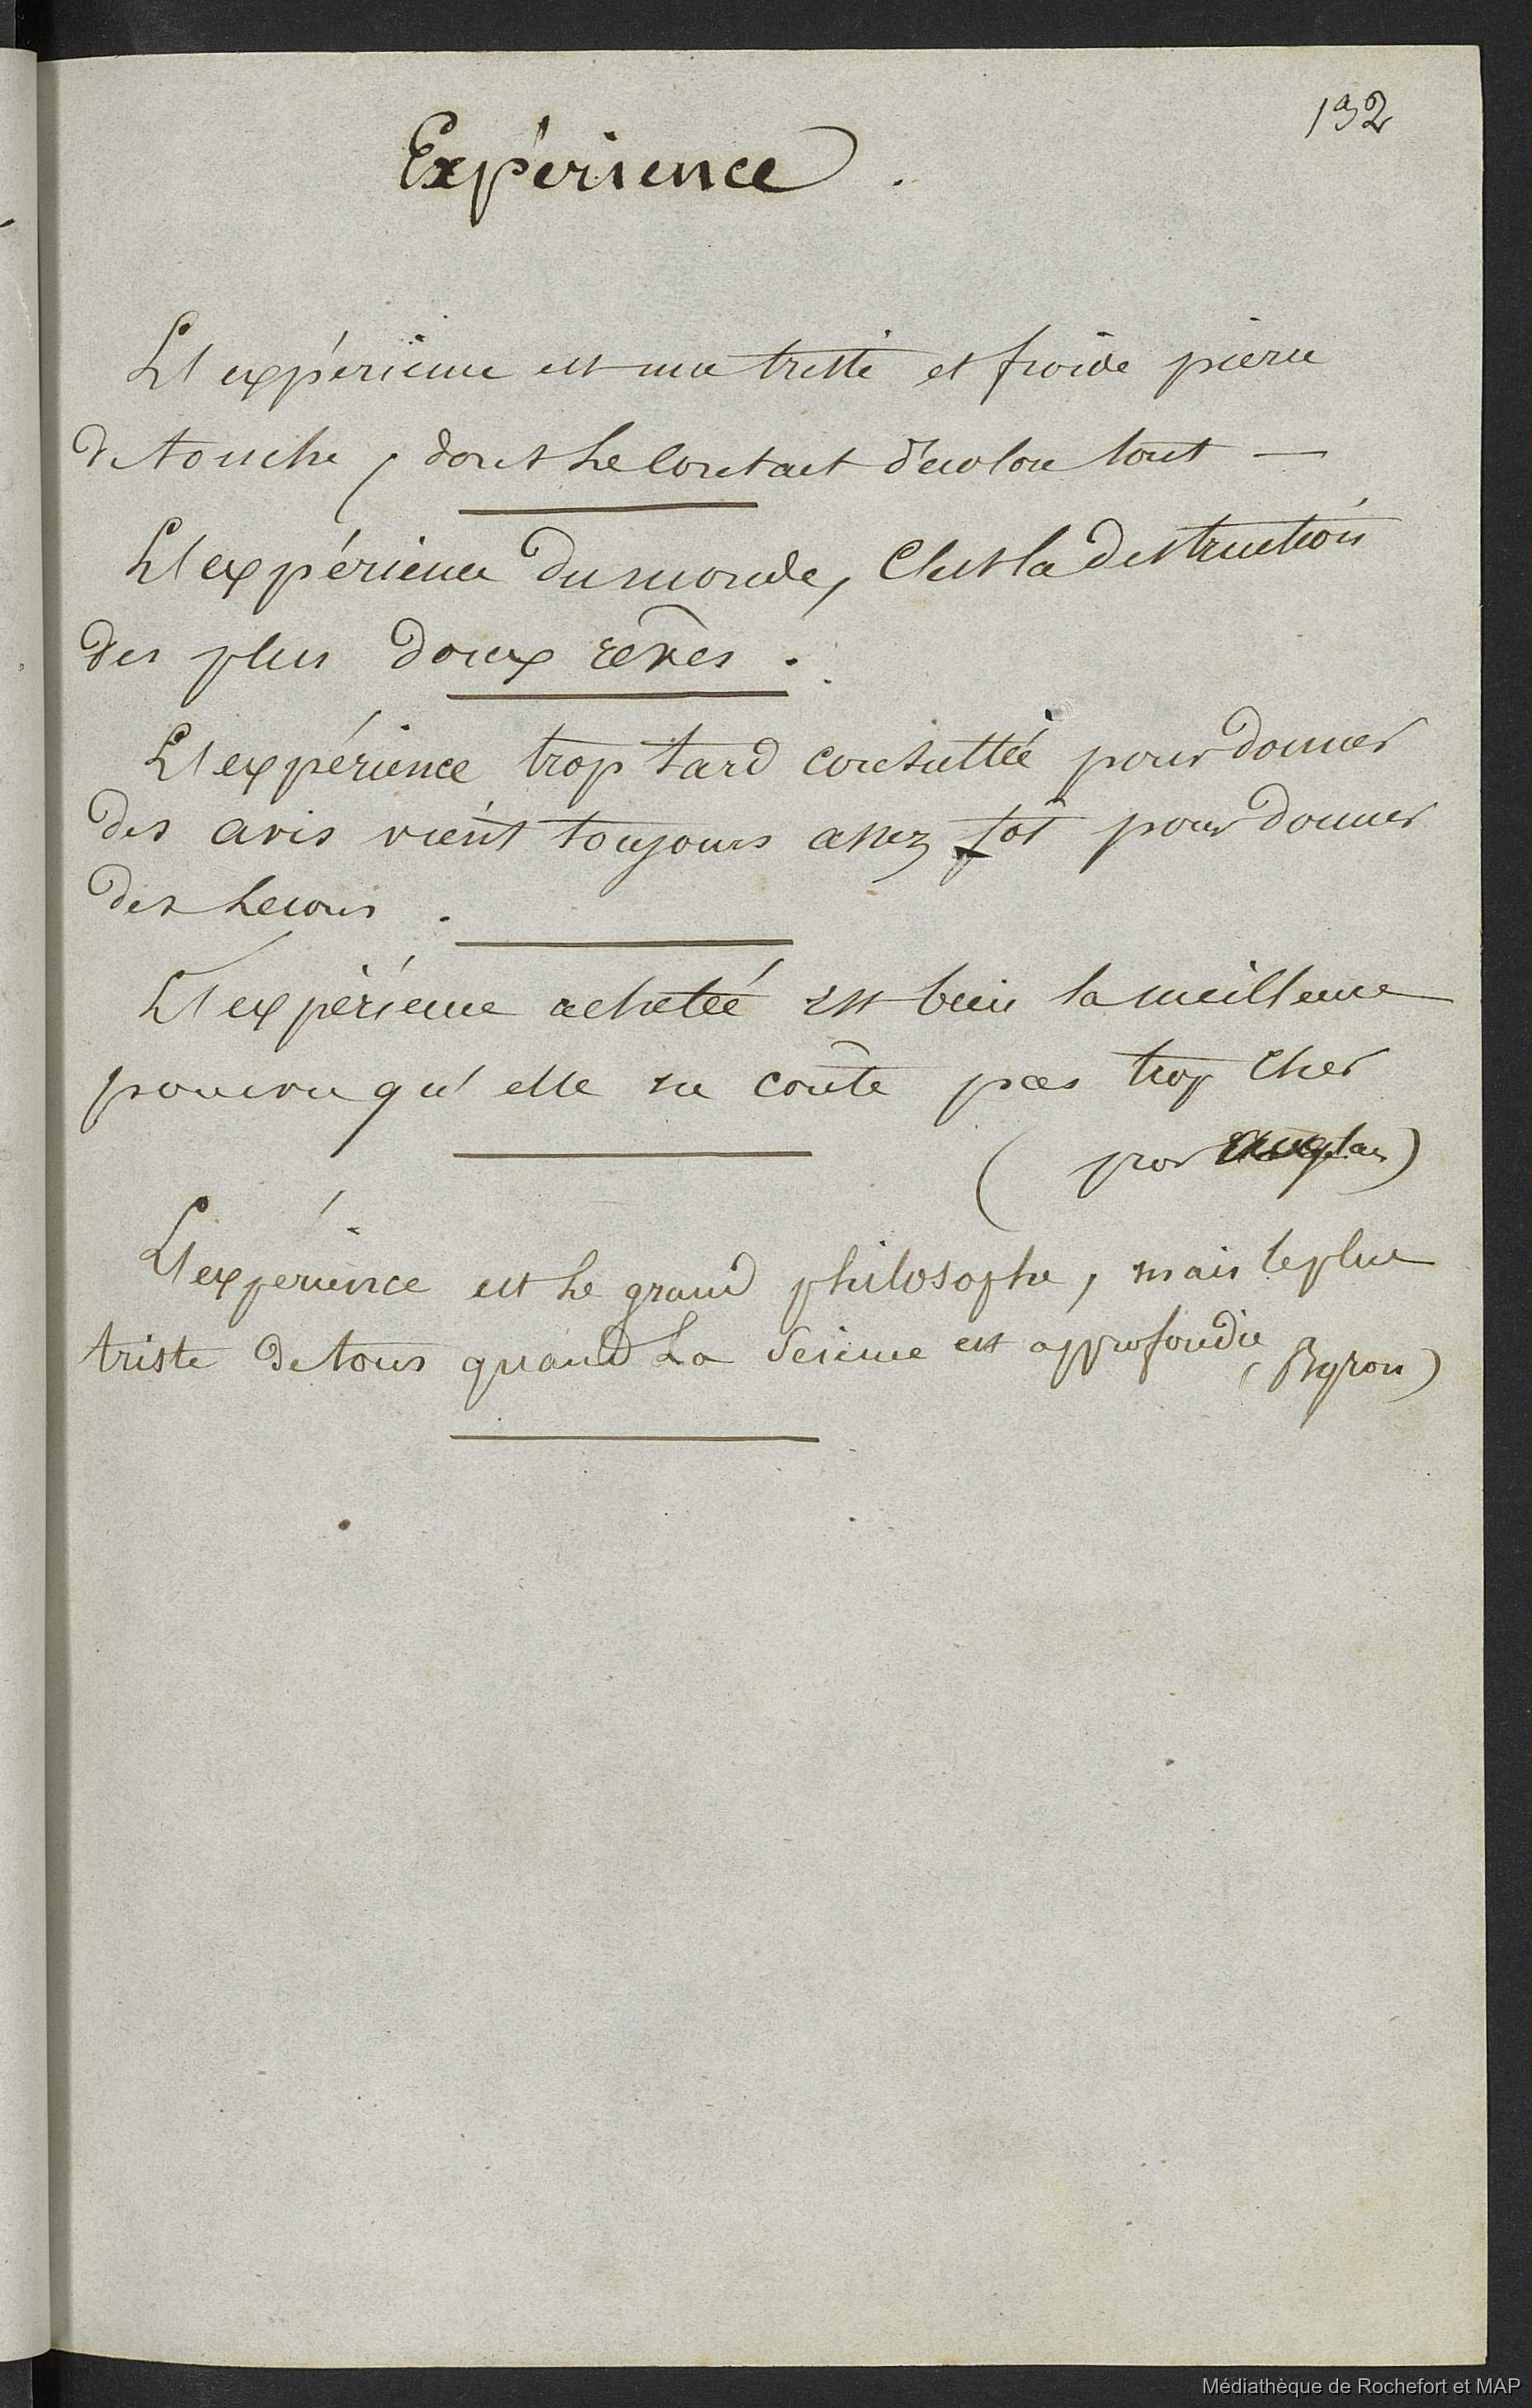 132
Expérience.
L'expérience est une triste et froide pierre
de touche, dont le contact décolore tout —
L'expérience du monde, C'est la destruction
des plus doux rêves.
L'expérience trop tard consultée pour donner
des avis vient toujours assez tôt pour donner
des lecons.
L'expérience achetée est bien la meilleure
pourvu qu'elle ne coûte pas trop cher
(par
L'expérience est le grand philosophe, mais le plus
triste de tous quand la Science est approfondie
(Byron)
Médiathèque de Rochefort et MAP